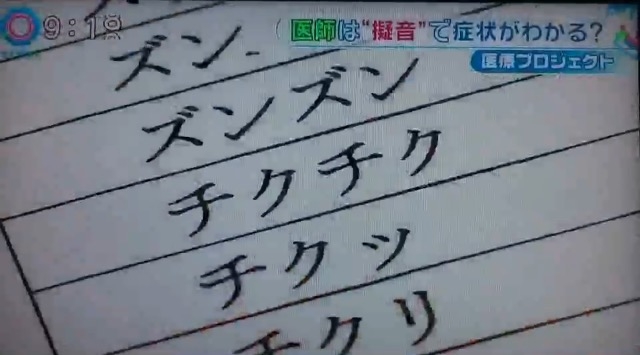 9:18
医師は“擬音”で症状がわかる?
医療プロジェクト
ズン
ズンズン
チクチク
チクッ
チクリ